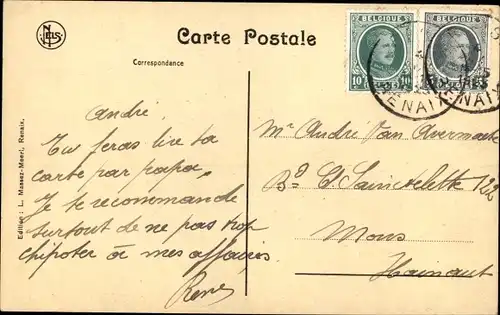 Nels
Carte Postale
Correspondance
Edition : L. Massez-Meerl, Renaix.
BELGIQUE
10 10
BELGIQUE
RENAIX
RENAIX
André
Tu feras lire ta
carte par papa.
Je te recommande
surtout de ne pas trop
chipoter à mes affaires
René
Mr André Van Avermaete
Bd Ct Sainctelette 122
Mons
Hainaut